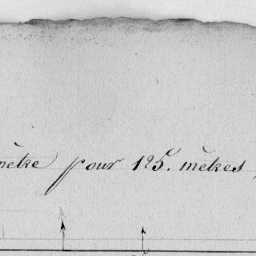 mètre pour 125. mètres